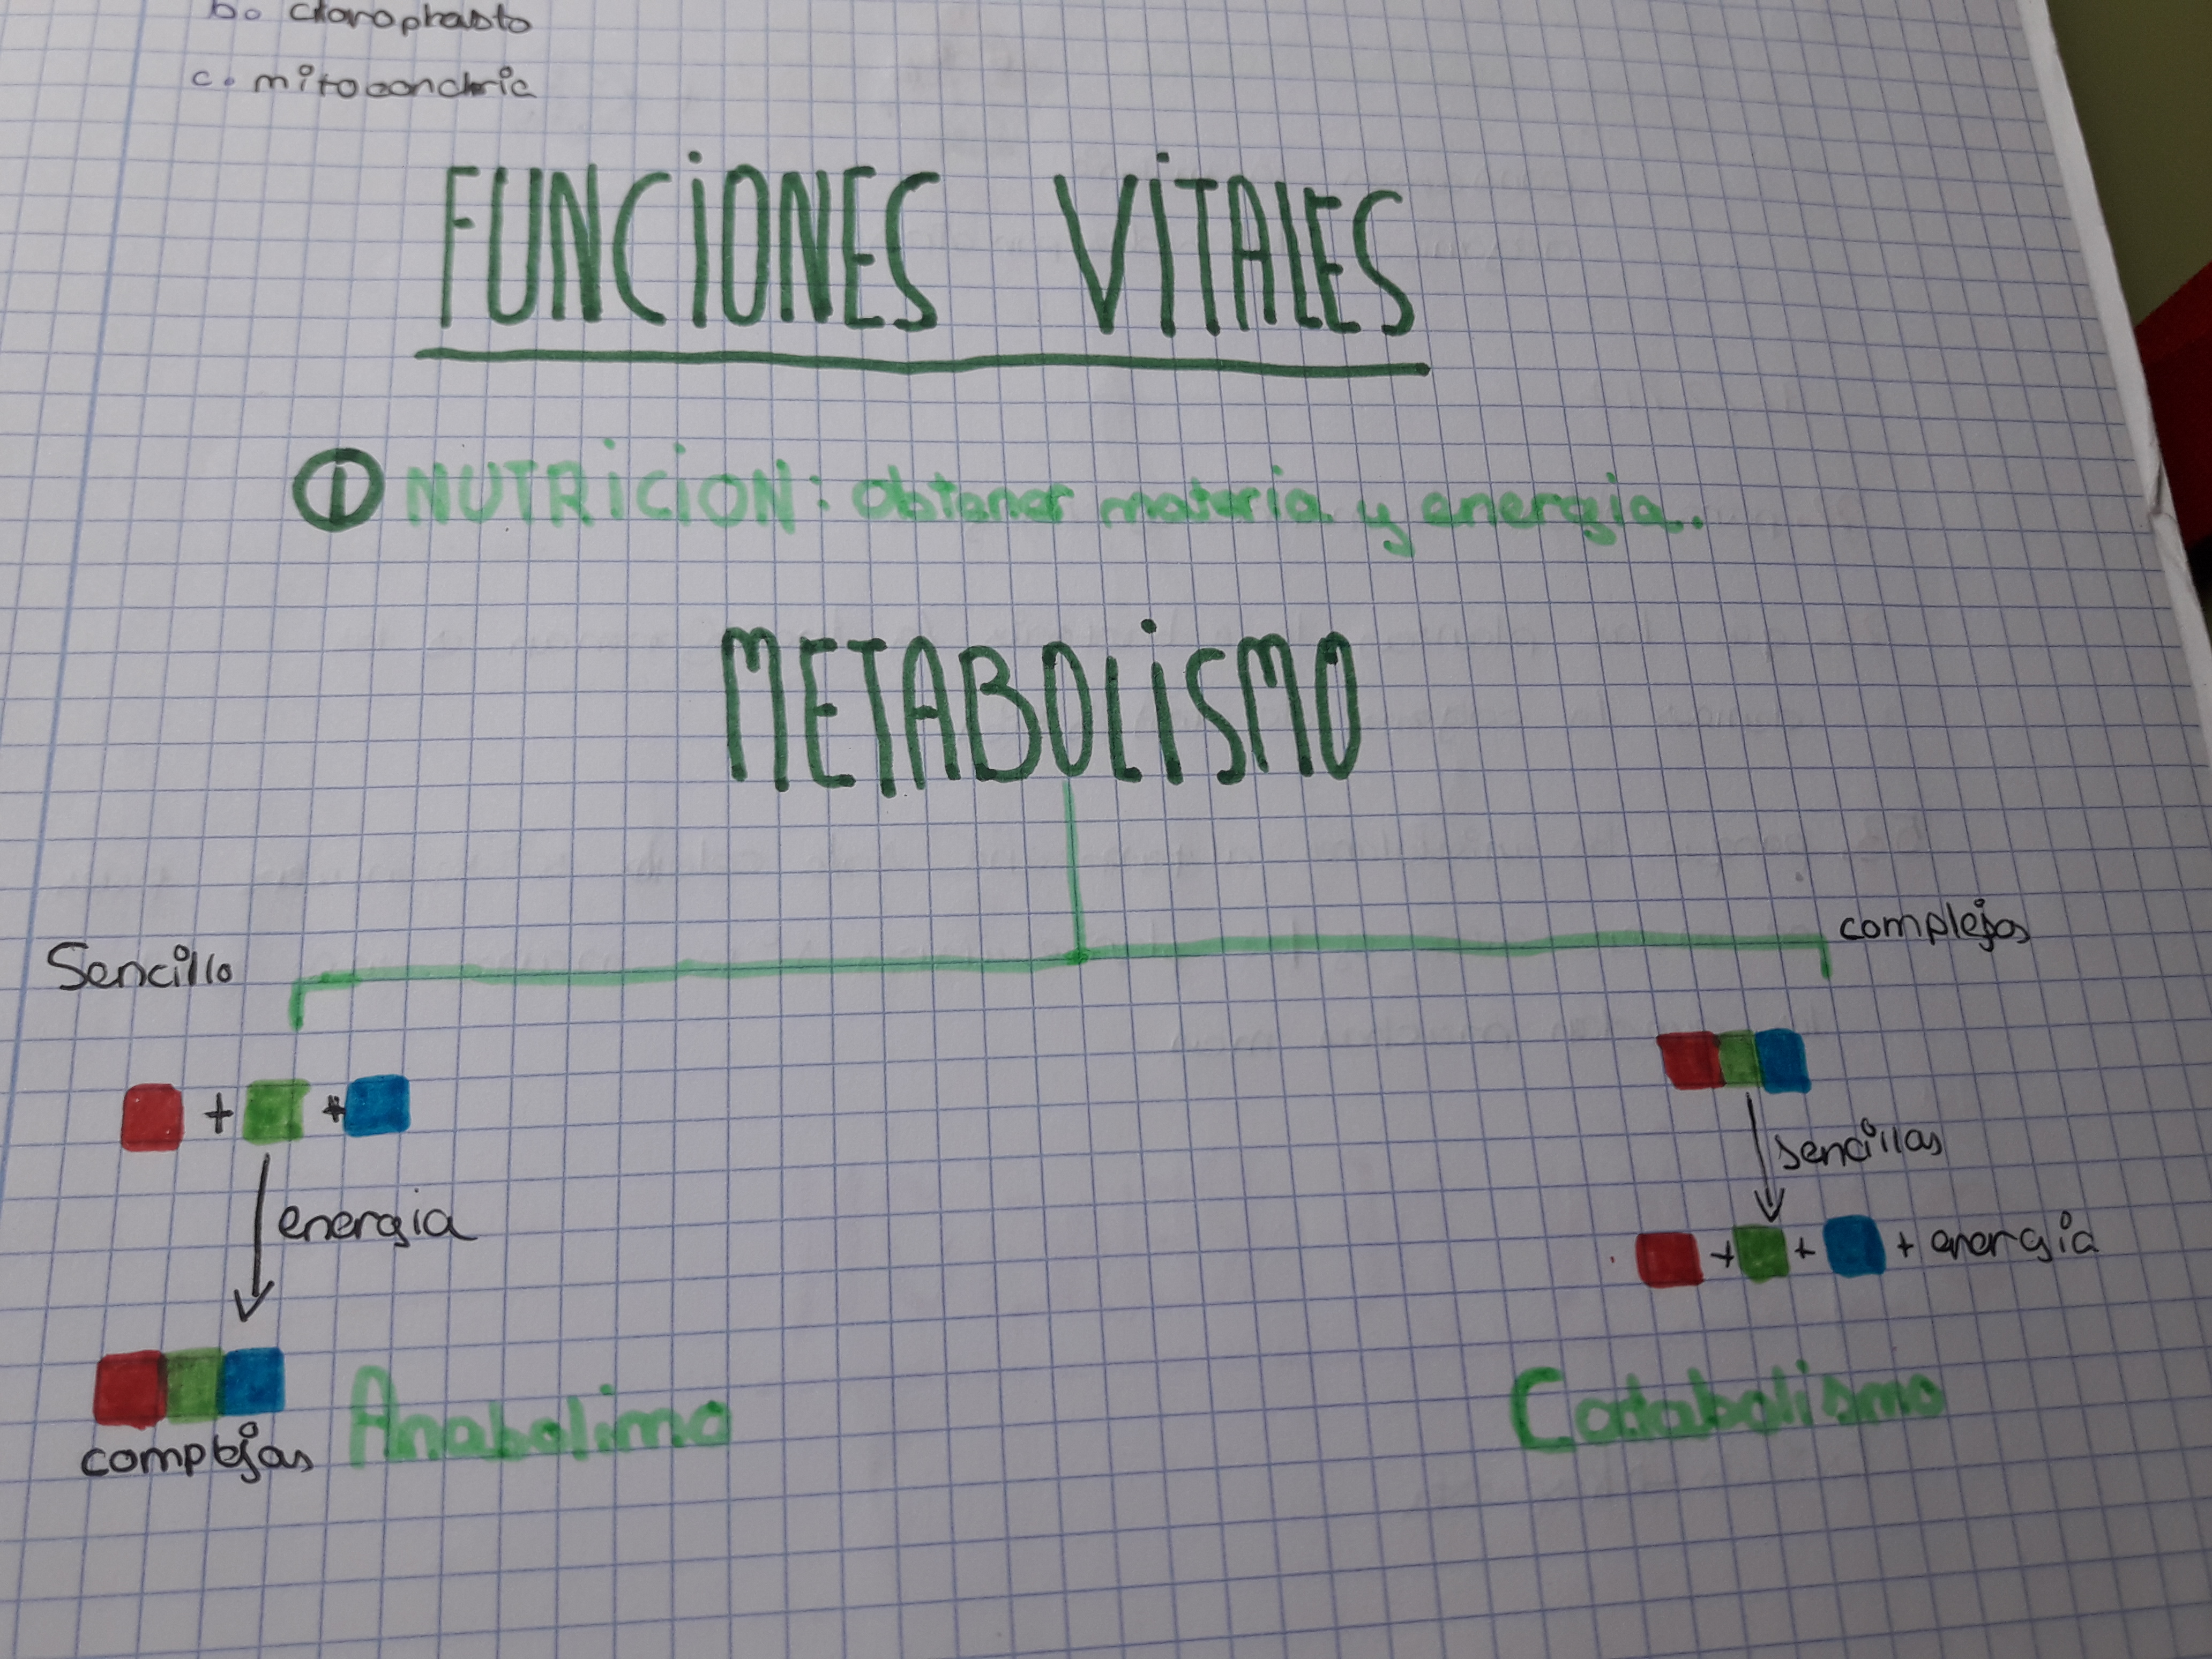 b. clorophasto
c. mitocondria
FUNCIONES VITALES
① NUTRICION: Obtener materia y energia.
METABOLISMO
Sencillo
complejos
+ +
sencillas
energia
+ + + energia
complejas
Anabolimo
Catabolismo